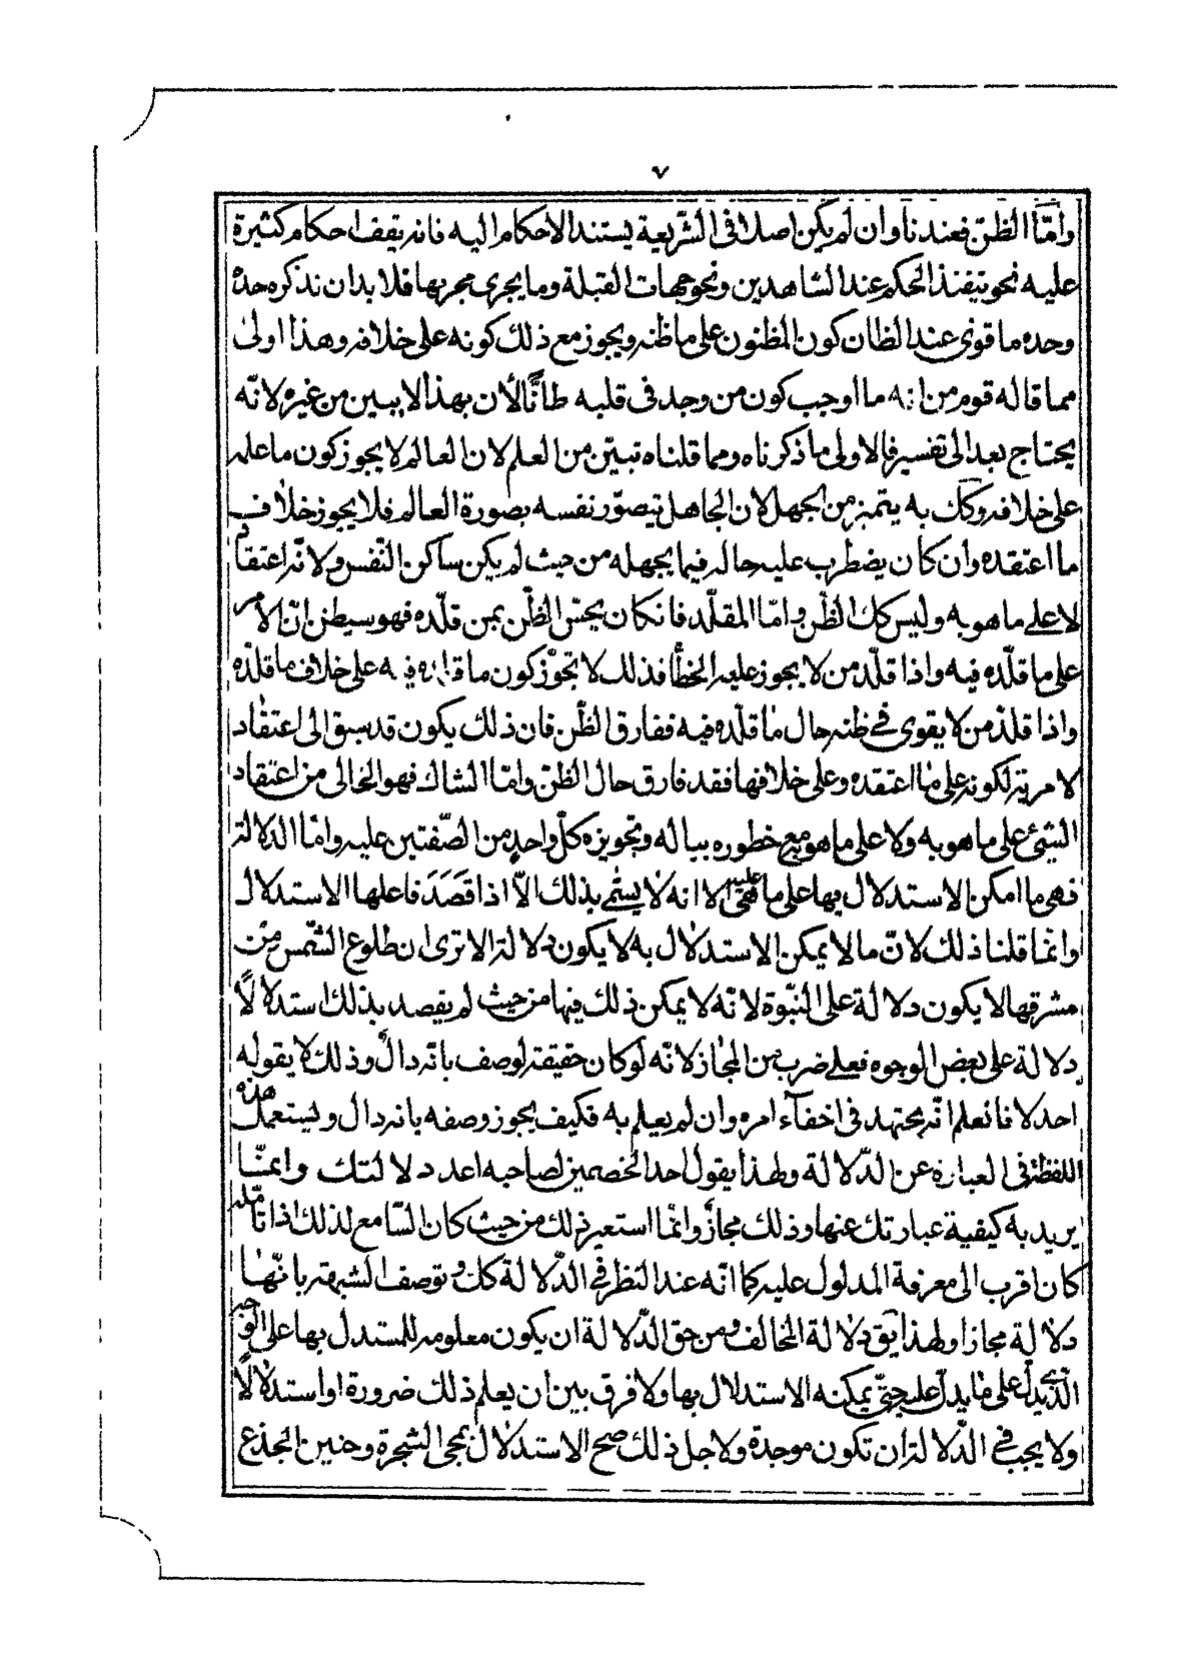 ٧
وامّا الظنّ فعندنا وان لم يكن اصلا فى الشّريعة يستند الاحكام اليه فانه يقف احكام كثيرة
عليه نحو تنفيذ الحكم عند الشاهدين ونحو جهات القبلة وما يجرى مجريها فلا بد ان نذكره حده
وحده ما قوى عند الظان كون المظنون على ما ظنه ويجوز مع ذلك كونه على خلافه وهذا اولى
مما قاله قوم من انه ما اوجب كون من وجد فى قلبه ظانًّا لأن بهذا لا يبين من غيره لانّه
يحتاج بعد الى تفسير فالاولى ما ذكرناه ومما قلناه تبيّن من العلم لان العالم لا يجوز كون ما علمه
على خلافه وكك به يتميز من الجهل لان الجاهل يتصوّر نفسه بصورة العالم فلا يجوز خلاف
ما اعتقده وان كان يضطرب عليه حاله فيما يجهله من حيث لم يكن ساكن النّفس ولانّه اعتقاد
لا على ما هو به وليس كك الظّن وامّا المقلّد فان كان يحسّن الظّن بمن قلّده فهو سيظن انّ الامر
على ما قلّده فيه واذا قلّد من لا يجوز عليه الخطأ فذلك لا يجوّز كون ما قلده فيه على خلاف ما قلّده
واذا قلّد من لا يقوى فى ظنه حال ما قلّده فيه ففارق الظّن فان ذلك يكون قد سبق الى اعتقاد
لا مرية لكونه على ما اعتقده وعلى خلافها فقد فارق حال الظنّ وامّا الشاك فهو الخالى من اعتقاد
الشيئ على ما هو به ولا على ما هو مع خطوره بباله وتجويزه كلّ واحدٍ من الصّفتين عليه وامّا الدلالة
فهى ما امكن الاستدلال بها على ما هى عليه الا انه لا يسمّى بذلك الّا اذا قَصَدَ فاعلها الاستدلال
وانما قلنا ذلك لانّ ما لا يمكن الاستدلال به لا يكون دلالة الا ترى ان طلوع الشّمس من
مشرقها لا يكون دلالة على النّبوّة لانّه لا يمكن ذلك فيها من حيث لم يقصد بذلك استدلالًا
دلالة على بعض الوجوه فعلى ضرب من المجاز لانّه لو كان حقيقة لوصف بانّه دالّ وذلك لا يقوله
احد لا فانعلم انّه يجتهد فى اخفآء امره وان لم يعلم به فكيف يجوز وصفه بانه دال وليستعمل هذه
اللفظة فى العبارة عن الدّلالة ولهذا يقول احد الخصمين لصاحبه اعد دلالتك وانمّا
يريد به كيفية عبارتك عنها وذلك مجازٌ وانمّا استعير ذلك من حيث كان السّامع لذلك اذا تامّله
كان اقرب الى معرفة المدلول عليه كما انّه عند النظر فى الدّلالة كك وتوصف الشبهة بانّها
دلالة مجازا ولهذا يق دلالة المخالف ومن حق الدّلالة ان يكون معلومة للمستدل بها على الوجه
الّذى يدلّ على ما يدلّ عليه حتّى يمكنه الاستدلال بها ولا فرق بين ان يعلم ذلك ضرورة او استدلالًا
ولا يجب فى الدّلالة ان تكون موجدة ولاجل ذلك صح الاستدلال بمجى الشجرة وحنين الجذع